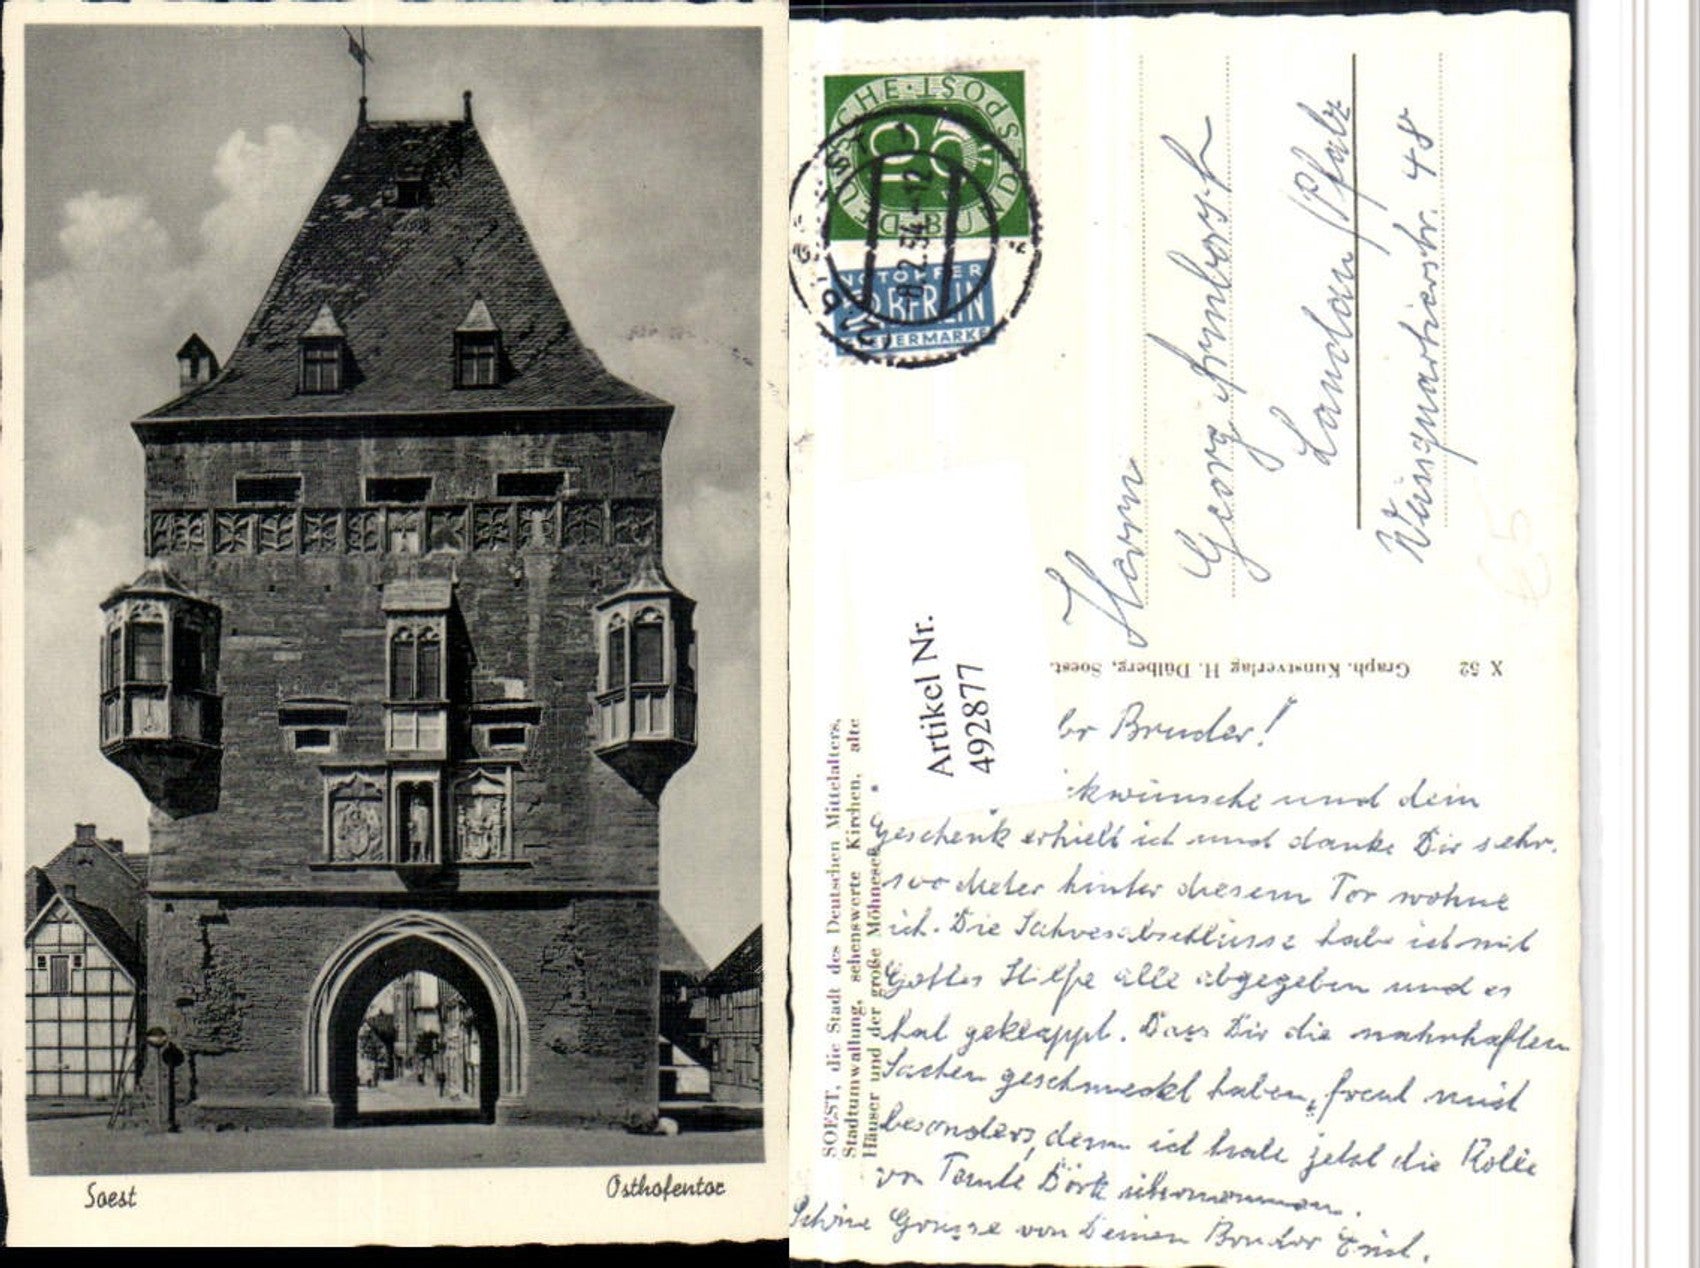 Soest
Osthofentor
DEUTSCHE · BUNDESPOST
10
NOTOPFER
2 BERLIN
STEUERMARKE
8.2.54.-12
Artikel Nr.
492877
Herrn
Georg Armborst
Landau/Pfalz
Weissquartierstr. 48
X 52 Graph. Kunstverlag H. Dülberg, Soest.
SOEST, die Stadt des Deutschen Mittelalters,
Stadtumwallung, sehenswerte Kirchen, alte
Häuser und der große Möhnesee
br Bruder!
ckwünsche und dein
Geschenk erhielt ich und danke Dir sehr.
100 Meter hinter diesem Tor wohne
ich. Die Jahresabschlüsse habe ich mit
Gottes Hilfe alle abgegeben und es
hat geklappt. Dass Dir die nahrhaften
Sachen geschmeckt haben, freut mich
besonders, denn ich habe jetzt die Rolle
von Tante übernommen.
Schöne Grüsse von Deinem Bruder